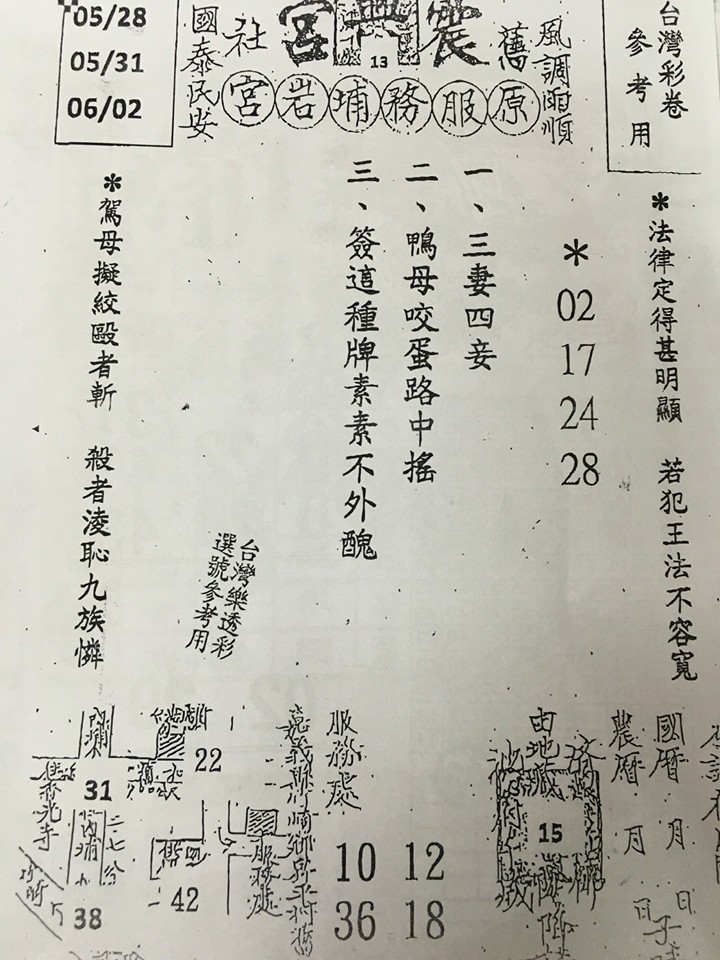 台灣彩卷
參考用
風調雨順
舊
震興宮
13
社
原服務埔岩宮
國泰民安
05/28
05/31
06/02
*法律定得甚明顯 若犯王法不容寬
*
02
17
24
28
一、三妻四妾
二、鴨母咬蛋路中搖
三、簽這種牌素素不外醜
*駕母擬絞毆者斬 殺者淩恥九族憐
台灣樂透彩
選號參考用
國曆 月 日
農曆 月 日
由地藏
15
服務處
12
18
10
36
22
服務處
42
31
38